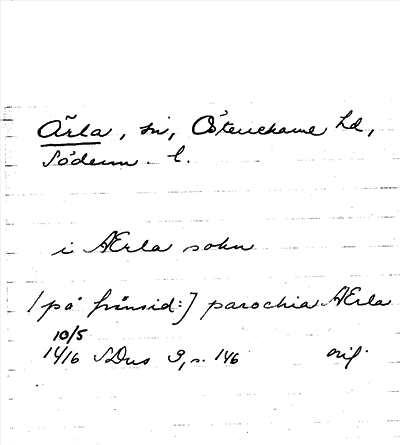 Ärla, sn, Österrekarne hd,
Söderm. l.
i Ærla sokn
[på frånsid:] parochia Ærla
10/5
1416 SDns 3, s. 146 orig.